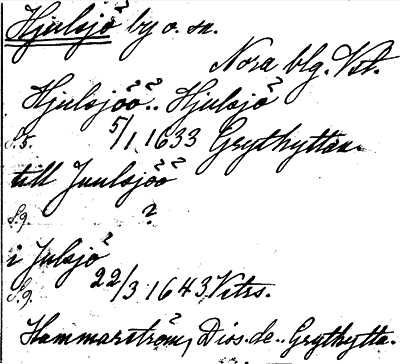 Hjulsjö by o. sn.
Nora blg. Vstl.
Hjulsjöö.. Hjulsjö
S.5. 5/1 1633 Grythyttan.
till Juulsjöö
S.9. ?
i Julsjö
S.9. 22/3 1643, Vitrs.
Hammarström, Dios.de.. Grythytta.